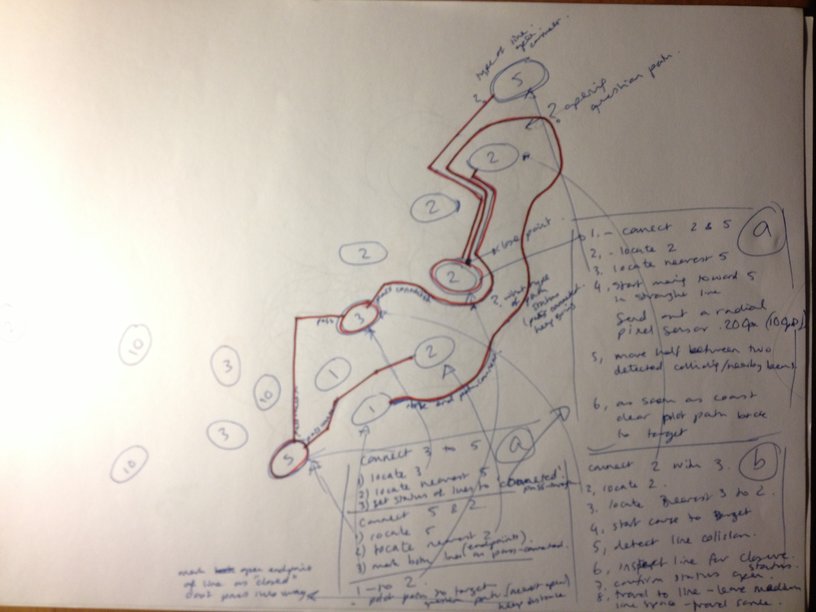 type of line
5
2,
2. opening
question path.
2
2
close point.
2
2
2, what type
of path
status
pass connected
3
pass
2
1
1
note and path connect
10
3
10
3
10
5
a
1, - connect 2 & 5
2, - locate 2
3, locate nearest 5
4, start moving toward 5
in straight line
Send out a radial
pixel sensor. 20px (10px)
5, move half between two
detected colliding/nearby beams.
6, as soon as coast
clear plot path back
to target
a
connect 3 to 5
1) locate 3
2) locate nearest 5
3) set status of lines to connected.
pass-through
connect 5 & 2
1) locate 5
2) locate nearest 2
(endpoints).
3) mark both lines as pass-connected.
1 - to 2.
plot path to target
keep distance
mark open endpoints
of line as "closed"
don't pass this way
b
connect 2 with 3.
2, locate 2.
3, locate nearest 3 to 2.
4, start course to target
5, detect line collision.
6, inspect line for closure.
7, confirm status open.
status
8, travel to line - leave medium
line space - travel